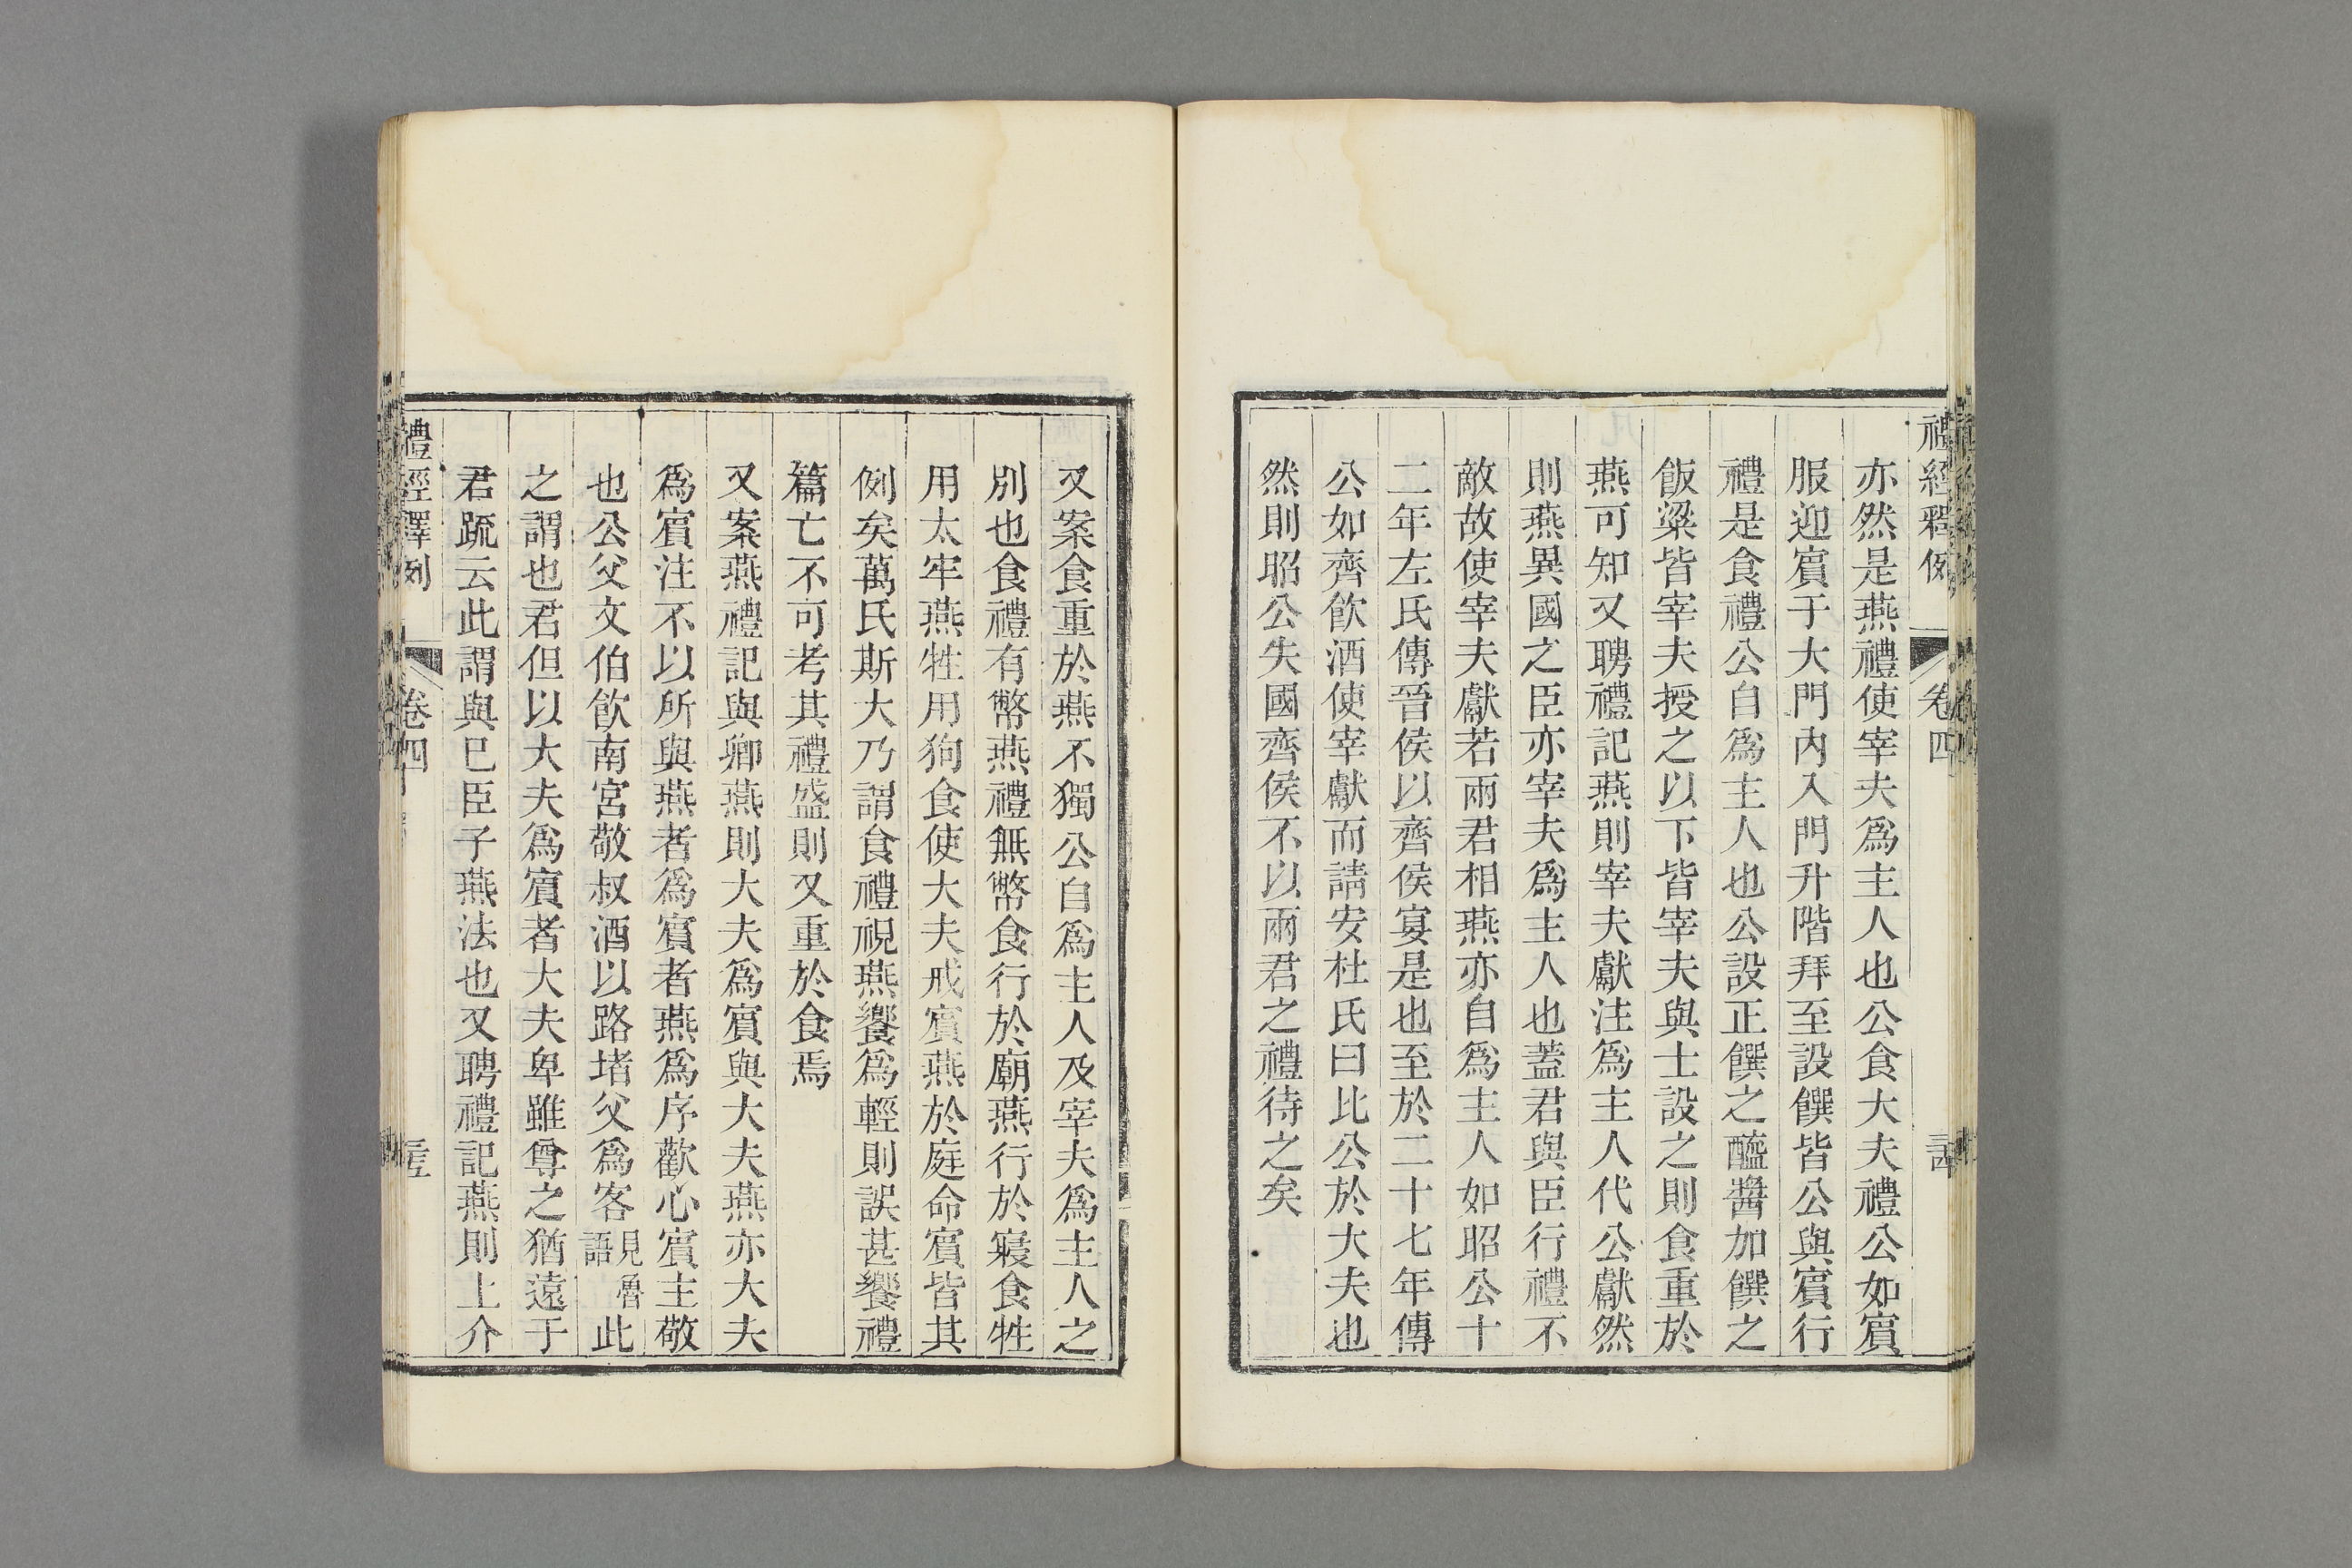 禮經釋例 卷四
亦然是燕禮使宰夫爲主人也公食大夫禮公如賓
服迎賓于大門內入門升階拜至設饌皆公與賓行
禮是食禮公自爲主人也公設正饌之醯醬加饌之
飯粱皆宰夫授之以下皆宰夫與士設之則食重於
燕可知又聘禮記燕則宰夫獻注爲主人代公獻然
則燕異國之臣亦宰夫爲主人也蓋君與臣行禮不
敵故使宰夫獻若兩君相燕亦自爲主人如昭公十
二年左氏傳晉侯以齊侯宴是也至於二十七年傳
公如齊飲酒使宰獻而請安杜氏曰比公於大夫也
然則昭公失國齊侯不以兩君之禮待之矣
又案食重於燕不獨公自爲主人及宰夫爲主人之
別也食禮有幣燕禮無幣食行於廟燕行於寢食牲
用太牢燕牲用狗食使大夫戒賓燕於庭命賓皆其
例矣萬氏斯大乃謂食禮視燕饗爲輕則誤甚饗禮
篇亡不可考其禮盛則又重於食焉
又案燕禮記與卿燕則大夫爲賓與大夫燕亦大夫
爲賓注不以所與燕者爲賓者燕爲序歡心賓主敬
也公父文伯飲南宮敬叔酒以路堵父爲客見魯語此
之謂也君但以大夫爲賓者大夫卑雖尊之猶遠于
君疏云此謂與已臣子燕法也又聘禮記燕則上介
禮經釋例 卷四